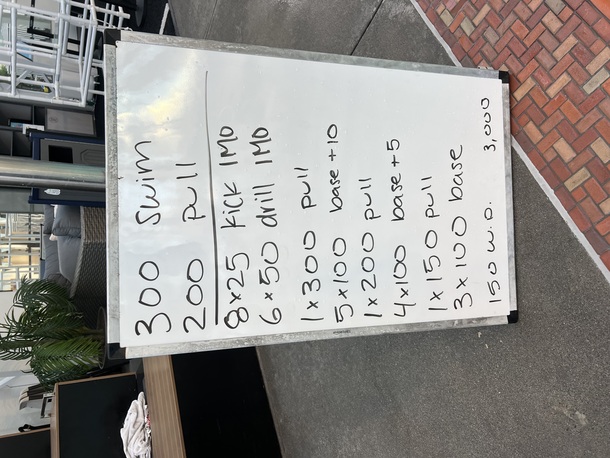 300 Swim
200 pull
8x25 kick IMO
6x50 drill IMO
1x300 pull
5x100 base +10
1x200 pull
4x100 base +5
1x150 pull
3x100 base
150 W.D. 3,000